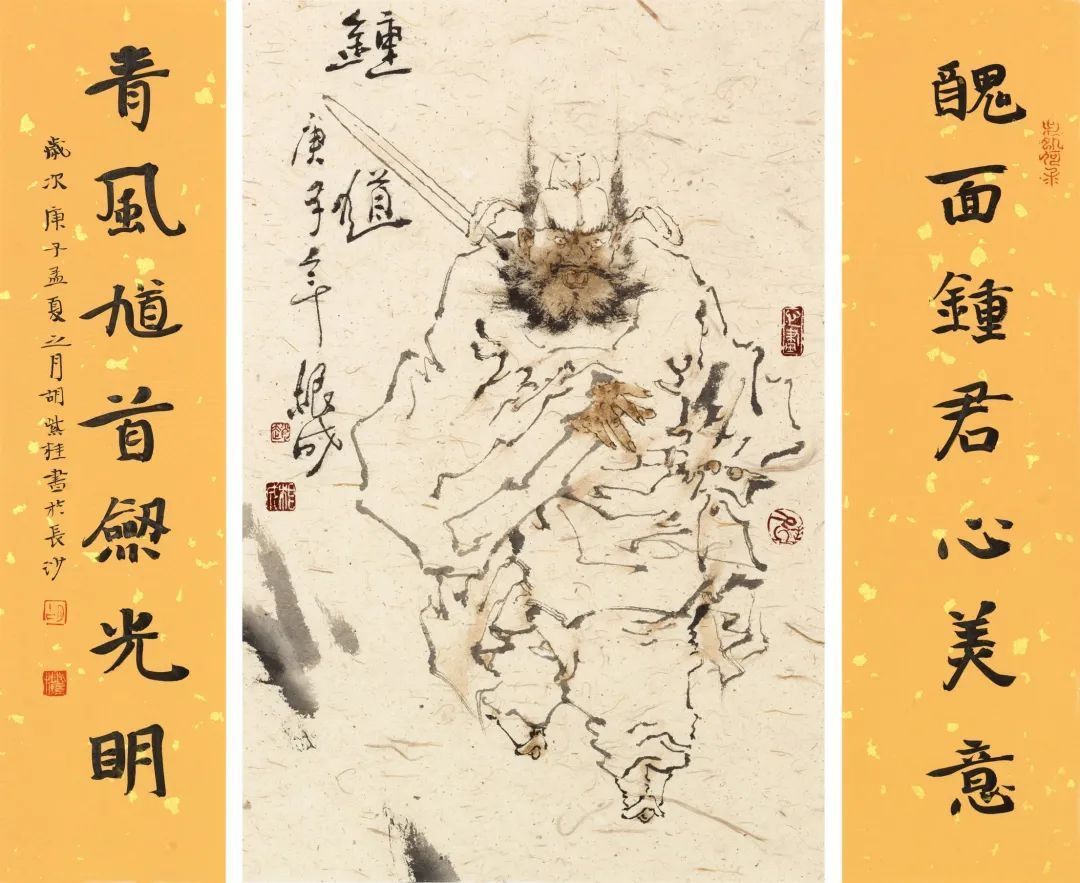 醜面鍾君心美意
鍾馗
庚子年 根成
青風馗首光明
歲次庚子孟夏之月胡紫桂書於長沙